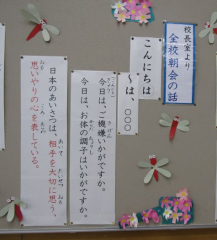 校長室より
全校朝会の話
こんにちは
～は、○○○
今日は、ご機嫌いかがですか。
今日は、お体の調子はいかがですか。
日本のあいさつは、相手を大切に思う、
思いやりの心を表している。